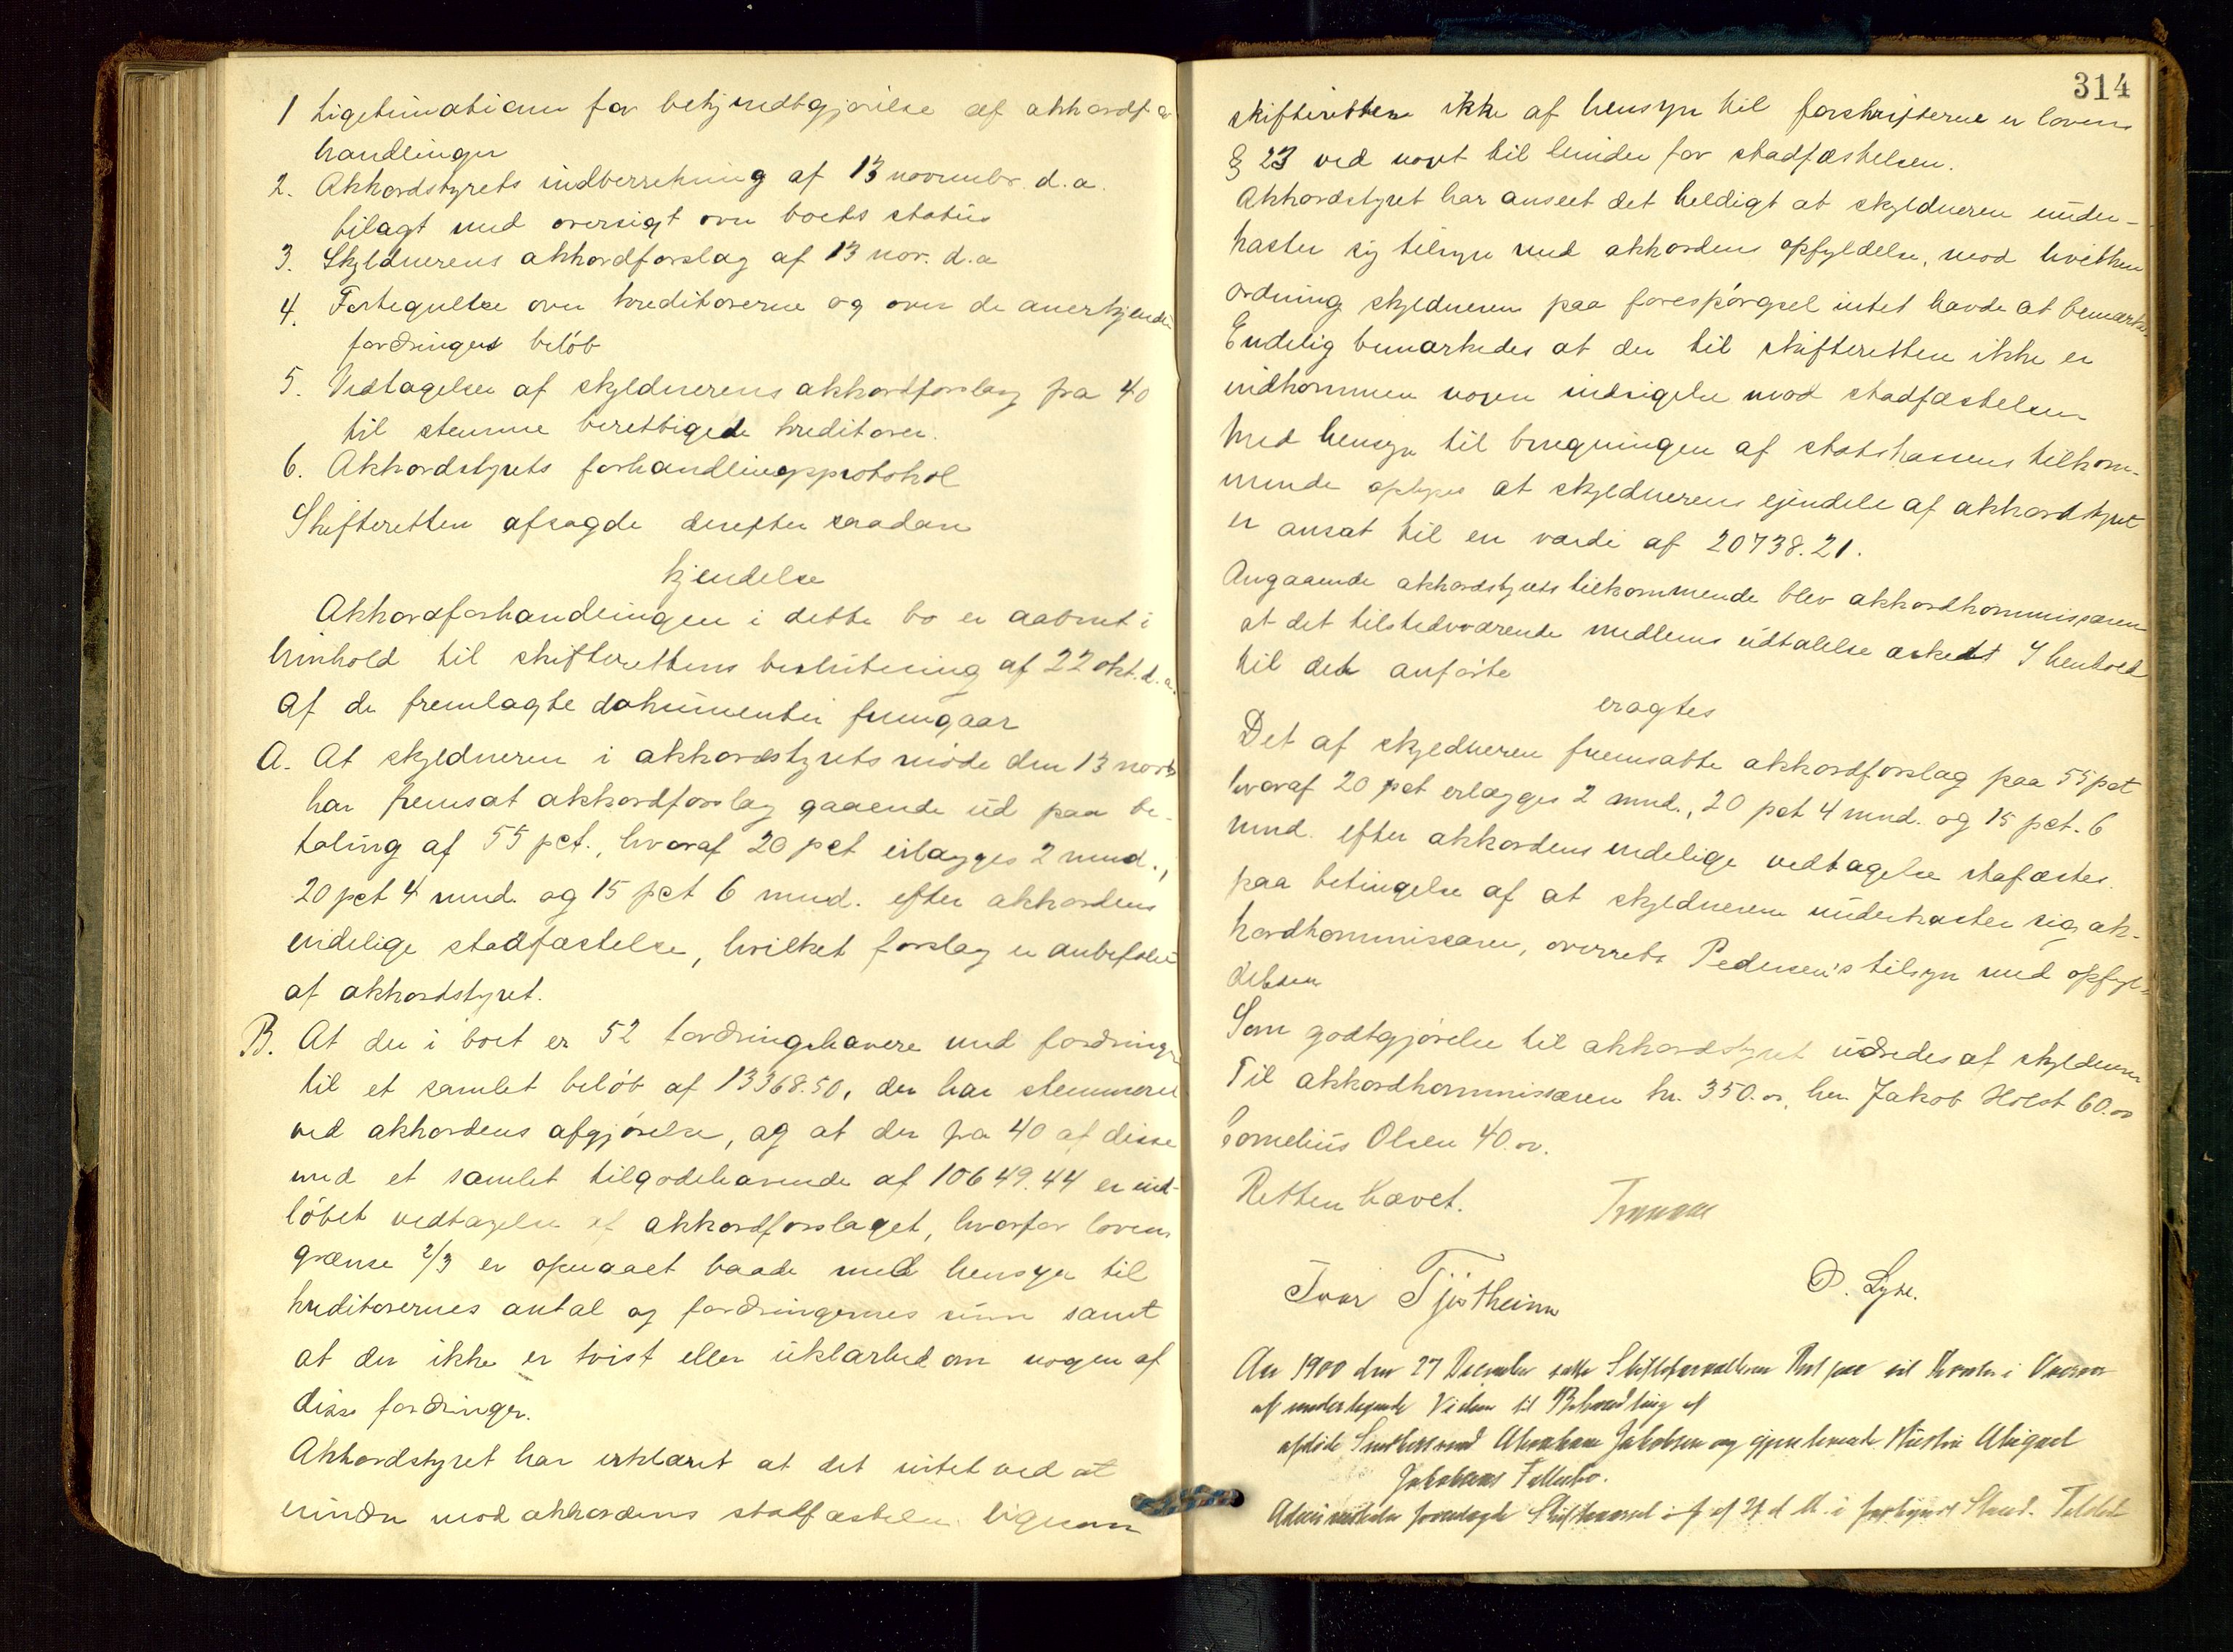 1 Ligetimationn for bekjendtgjørilse af akkordfor
handlingen
2. Akkordstyrets indberretning af 13 novembr. d.a.
bilagt med oversigt over boets status
3. Skyldnerens akkordforslag af 13 nov. d.a
4. Fortegnelse over kreditorerne og over de anerkjendte
fordringers beløb
5. Vedtagelse af skyldnerens akkordforslag fra 40
til stemme berettigede kreditorer.
6. Akkordstyrets forhandlingsprotokol
Skifteretten afsagde derefter saadan
kjendelse
Akkordforhandlingen i dette bo er aabnet i
hinhold til skifterettens beslutning af 22 okt. d.a.
Af de fremlagte dokumenter fremgaar
A. At skyldneren i akkordstyrets møde den 13 novb
har fremsat akkordforslag gaaende ud paa be-
taling af 55 pct., hvoraf 20 pct erlægges 2 mnd.,
20 pct 4 mnd. og 15 pct 6 mnd. efter akkordens
endelige stadfæstelse, hvilket forslag er anbefalet
af akkordstyret.
B. At der i boet er 52 fordringshavere med fordringer
til et samlet beløb af 13368.50, der har stemmeret
ved akkordens afgjørelse, og at der fra 40 af disse
med et samlet tilgodehavende af 10649.44 er ind-
løbet vedtagelse af akkordforslaget, hvorfor lovens
grænse 2/3 er opnaaet baade med hensyn til
kreditorernes antal og fordringernes sum samt
at der ikke er tvist eller uklarhed om nogen af
disse fordringer.
Akkordstyret har erklæret at det intet ved at
erindre mod akkordens stadfæstelse ligesom
314
skifteretten ikke af hensyn til forskrifterne er lovens
§ 23 ved novt til hinder for stadfæstelsen.
Akkordstyret har anseet det heldigt at skyldneren under-
kaster sig tilsyn med akkordens opfyldelse, mod hvilken
ordning skyldneren paa forespørgsel intet havde at bemærke.
Endelig bemærkedes at der til skifteretten ikke er
indkommen nogen indsigelse mod stadfæstelsen
Med hensyn til bregningen af statskassens tilkom-
mende oplyses at skyldnerens ejendele af akkordstyret
er ansat til en værdi af 20738.21.
Angaaende akkordstyrets tilkommende blev akkordkommissæren
at det tilstedværende medlems udtalelse æsket I henhold
til det anførte
eragtes
Det af skyldneren fremsatte akkordforslag paa 55 pct
hvoraf 20 pct erlægges 2 mnd., 20 pct 4 mnd. og 15 pct. 6
mnd. efter akkordens endelige vedtagelse stafæstes
paa betingelse af at skyldneren underkaster sig ak-
kordkommissæren, overrets Pedersen's tilsyn med opfyl-
delsen
Som godtgjørelse til akkordstyret udredes af skyldneren
Til akkordkommissæren kr. 350.00, hr. Jakob Holst 60.00
Cornelius Olsen 40.00.
Retten hævet.
Ivar Tjøtheim
O. Lyse.
Aar 1900 den 27 December satte Skifteforvalteren Ret paa sit Kontor i
af undertegnede Vidner til Behandling af
afdøde Abraham Jakobsen og gjenlevende Hustru Abigael
Jakobsens Fællesbo.